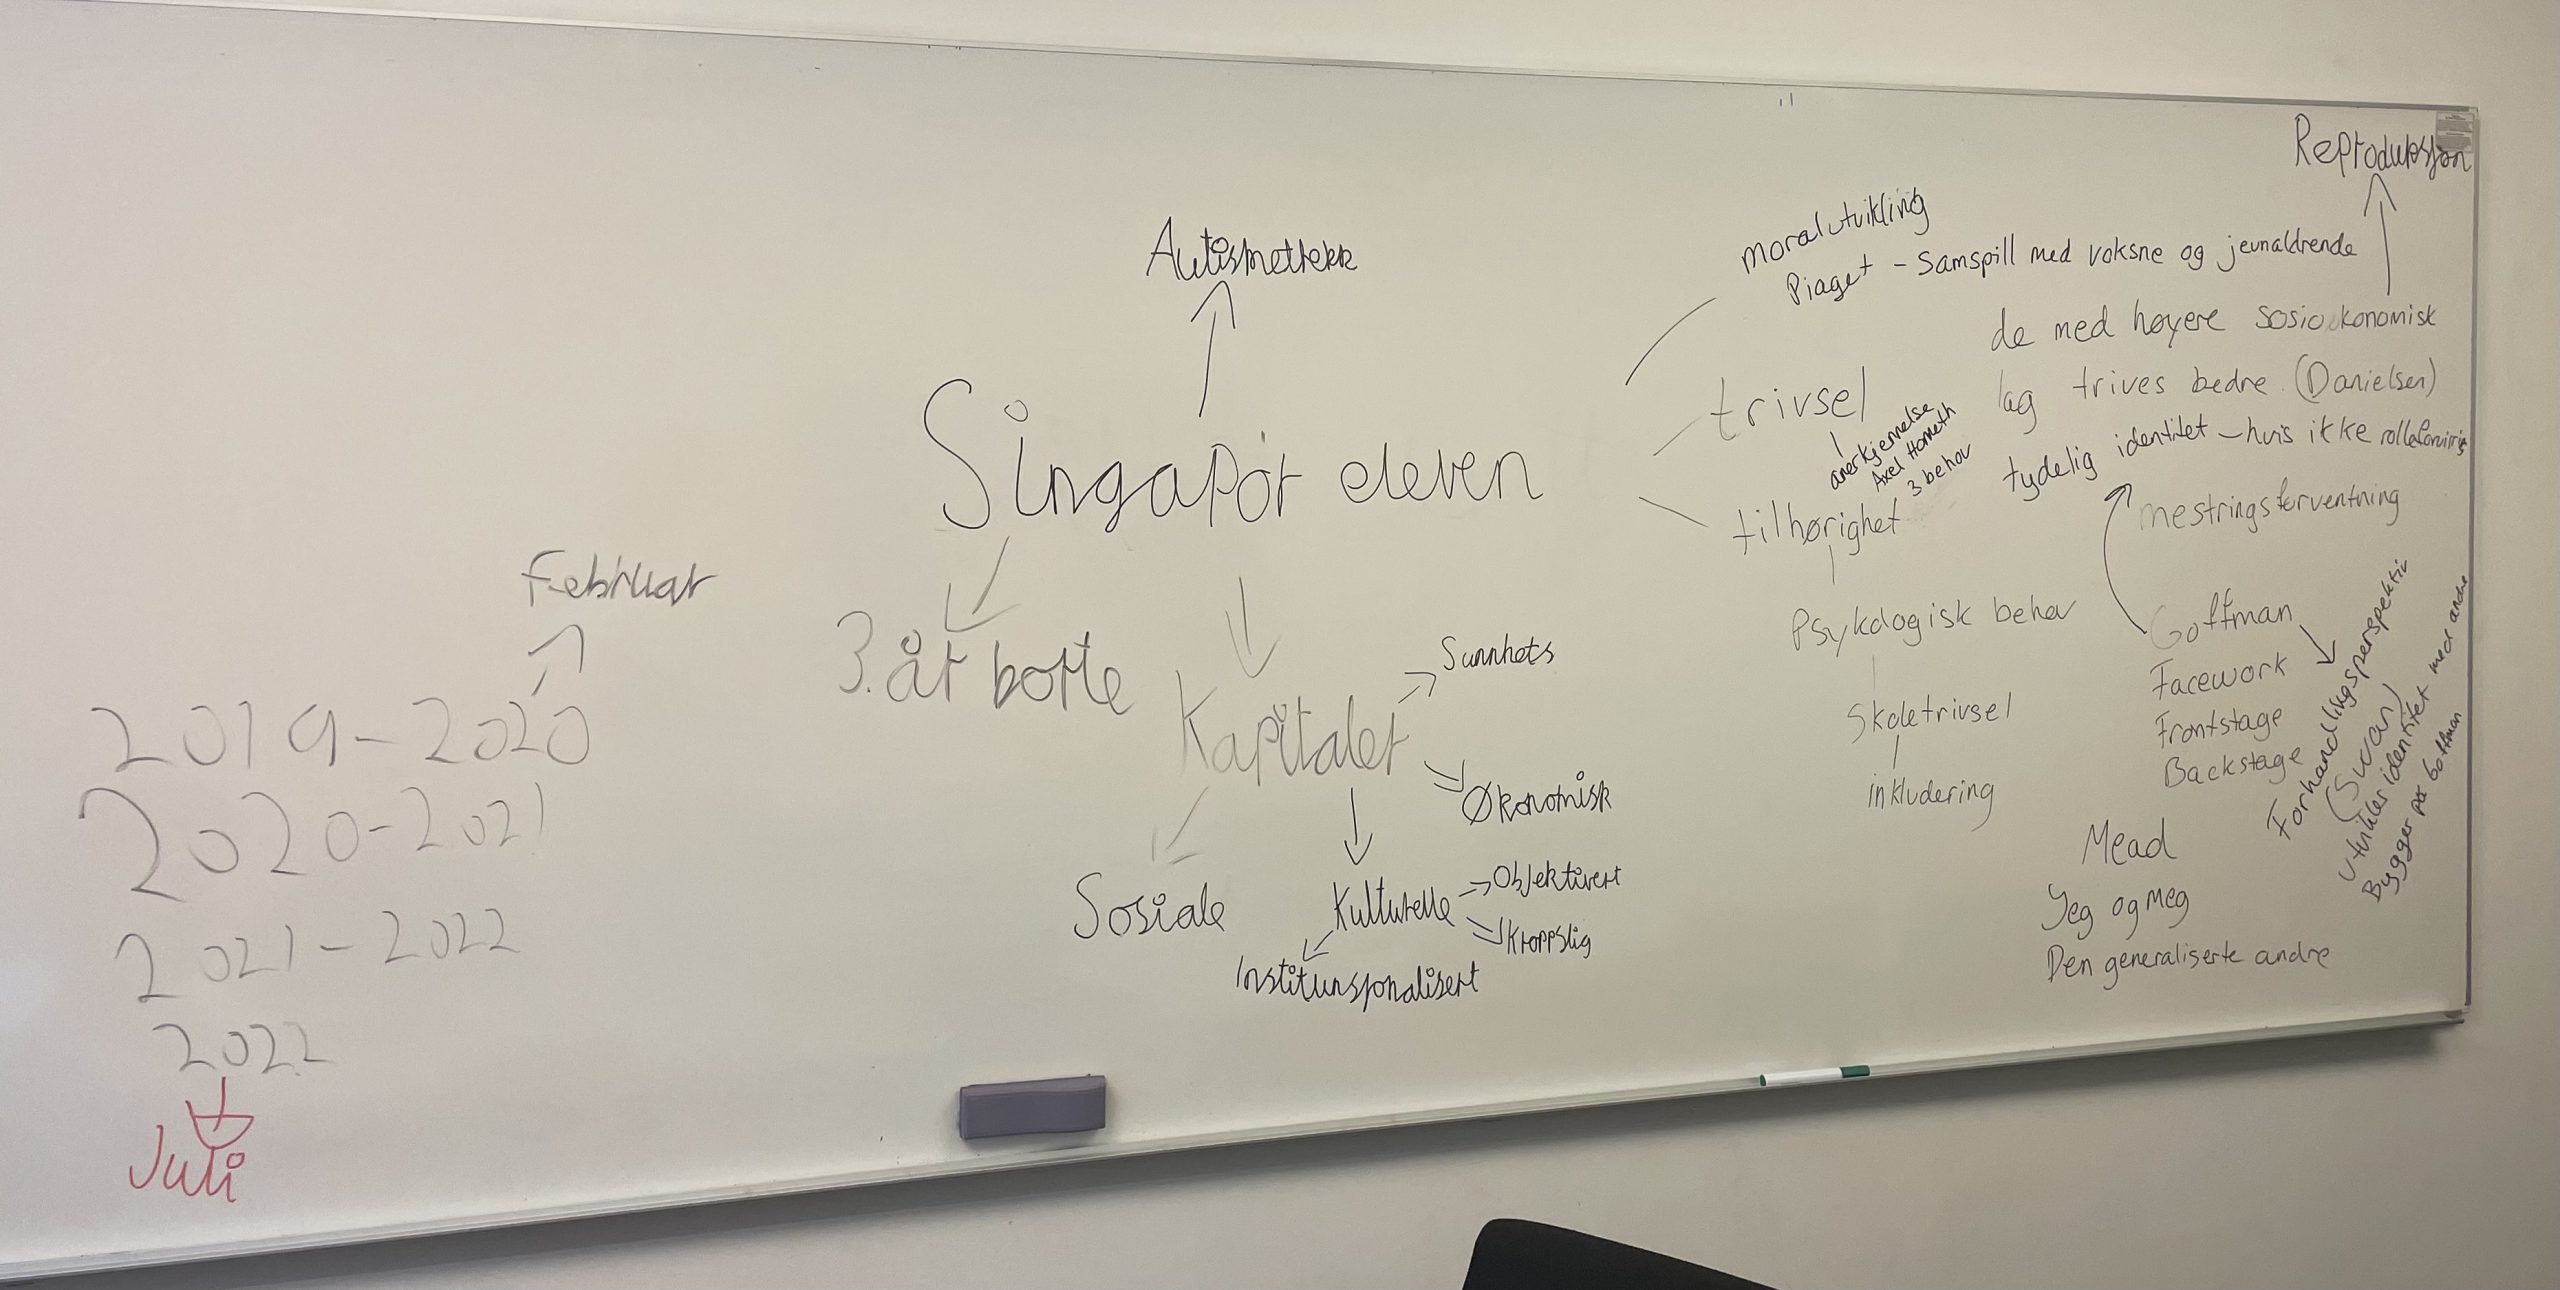 Reproduksjon
Autismetrekk
moralutvikling
Piaget - Samspill med voksne og jevnaldrende
de med høyere sosioøkonomisk
lag trives bedre. (Danielsen)
trivsel
anerkjennelse
Axel Honneth
3 behov
tydelig identitet - hvis ikke rolleforvirring
mestringsforventning
Singapor eleven
tilhørighet
Psykologisk behov
Skoletrivsel
inkludering
Goffman
Facework
Frontstage
Backstage
Forhandligsperspektiv
(Swan)
Utvikler identitet med andre
Bygger på Goffman
Mead
Jeg og meg
Den generaliserte andre
3. år borte
Kapitaler
Sunnhets
Økonomisk
Sosiale
Kulturelle
Objektivert
Kroppslig
Institunsjonalisert
Februar
2019-2020
2020-2021
2021-2022
2022
Juli